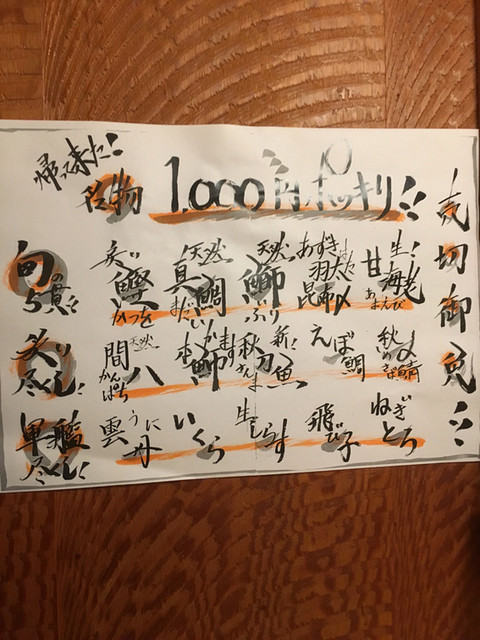 帰って来た!!
名物 1,000円ポッキリ!!
売切御免!!
旬の5貫!!
炙り尽くし!
軍艦尽くし!
生!甘海老 あまえび
あずきはた 羽太昆布〆
天然 鰤 ぶり
天然 真鯛 まだい
炙り 鰹 かつを
秋 〆鯖
えぼ鯛
新!秋刀魚 さんま
本鰤 かます
天然 間八 かんぱち
ねぎとろ
飛び子
生しらす
いくら
うに 雲丹